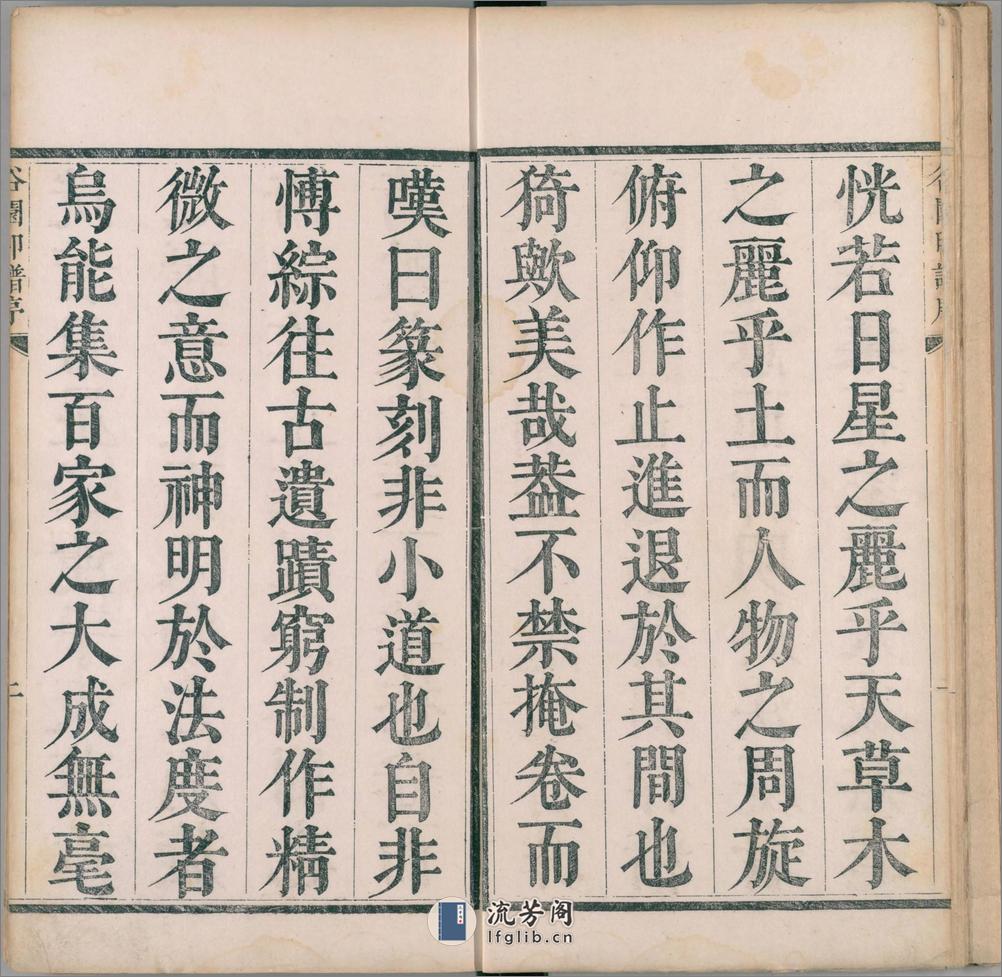 恍若日星之麗乎天草木
之麗乎土而人物之周旋
俯仰作止進退於其間也
猗歟美哉葢不禁掩卷而
嘆曰篆刻非小道也自非
博綜往古遺蹟窮制作精
微之意而神明於法度者
烏能集百家之大成無毫
二
流芳阁
lfglib.cn